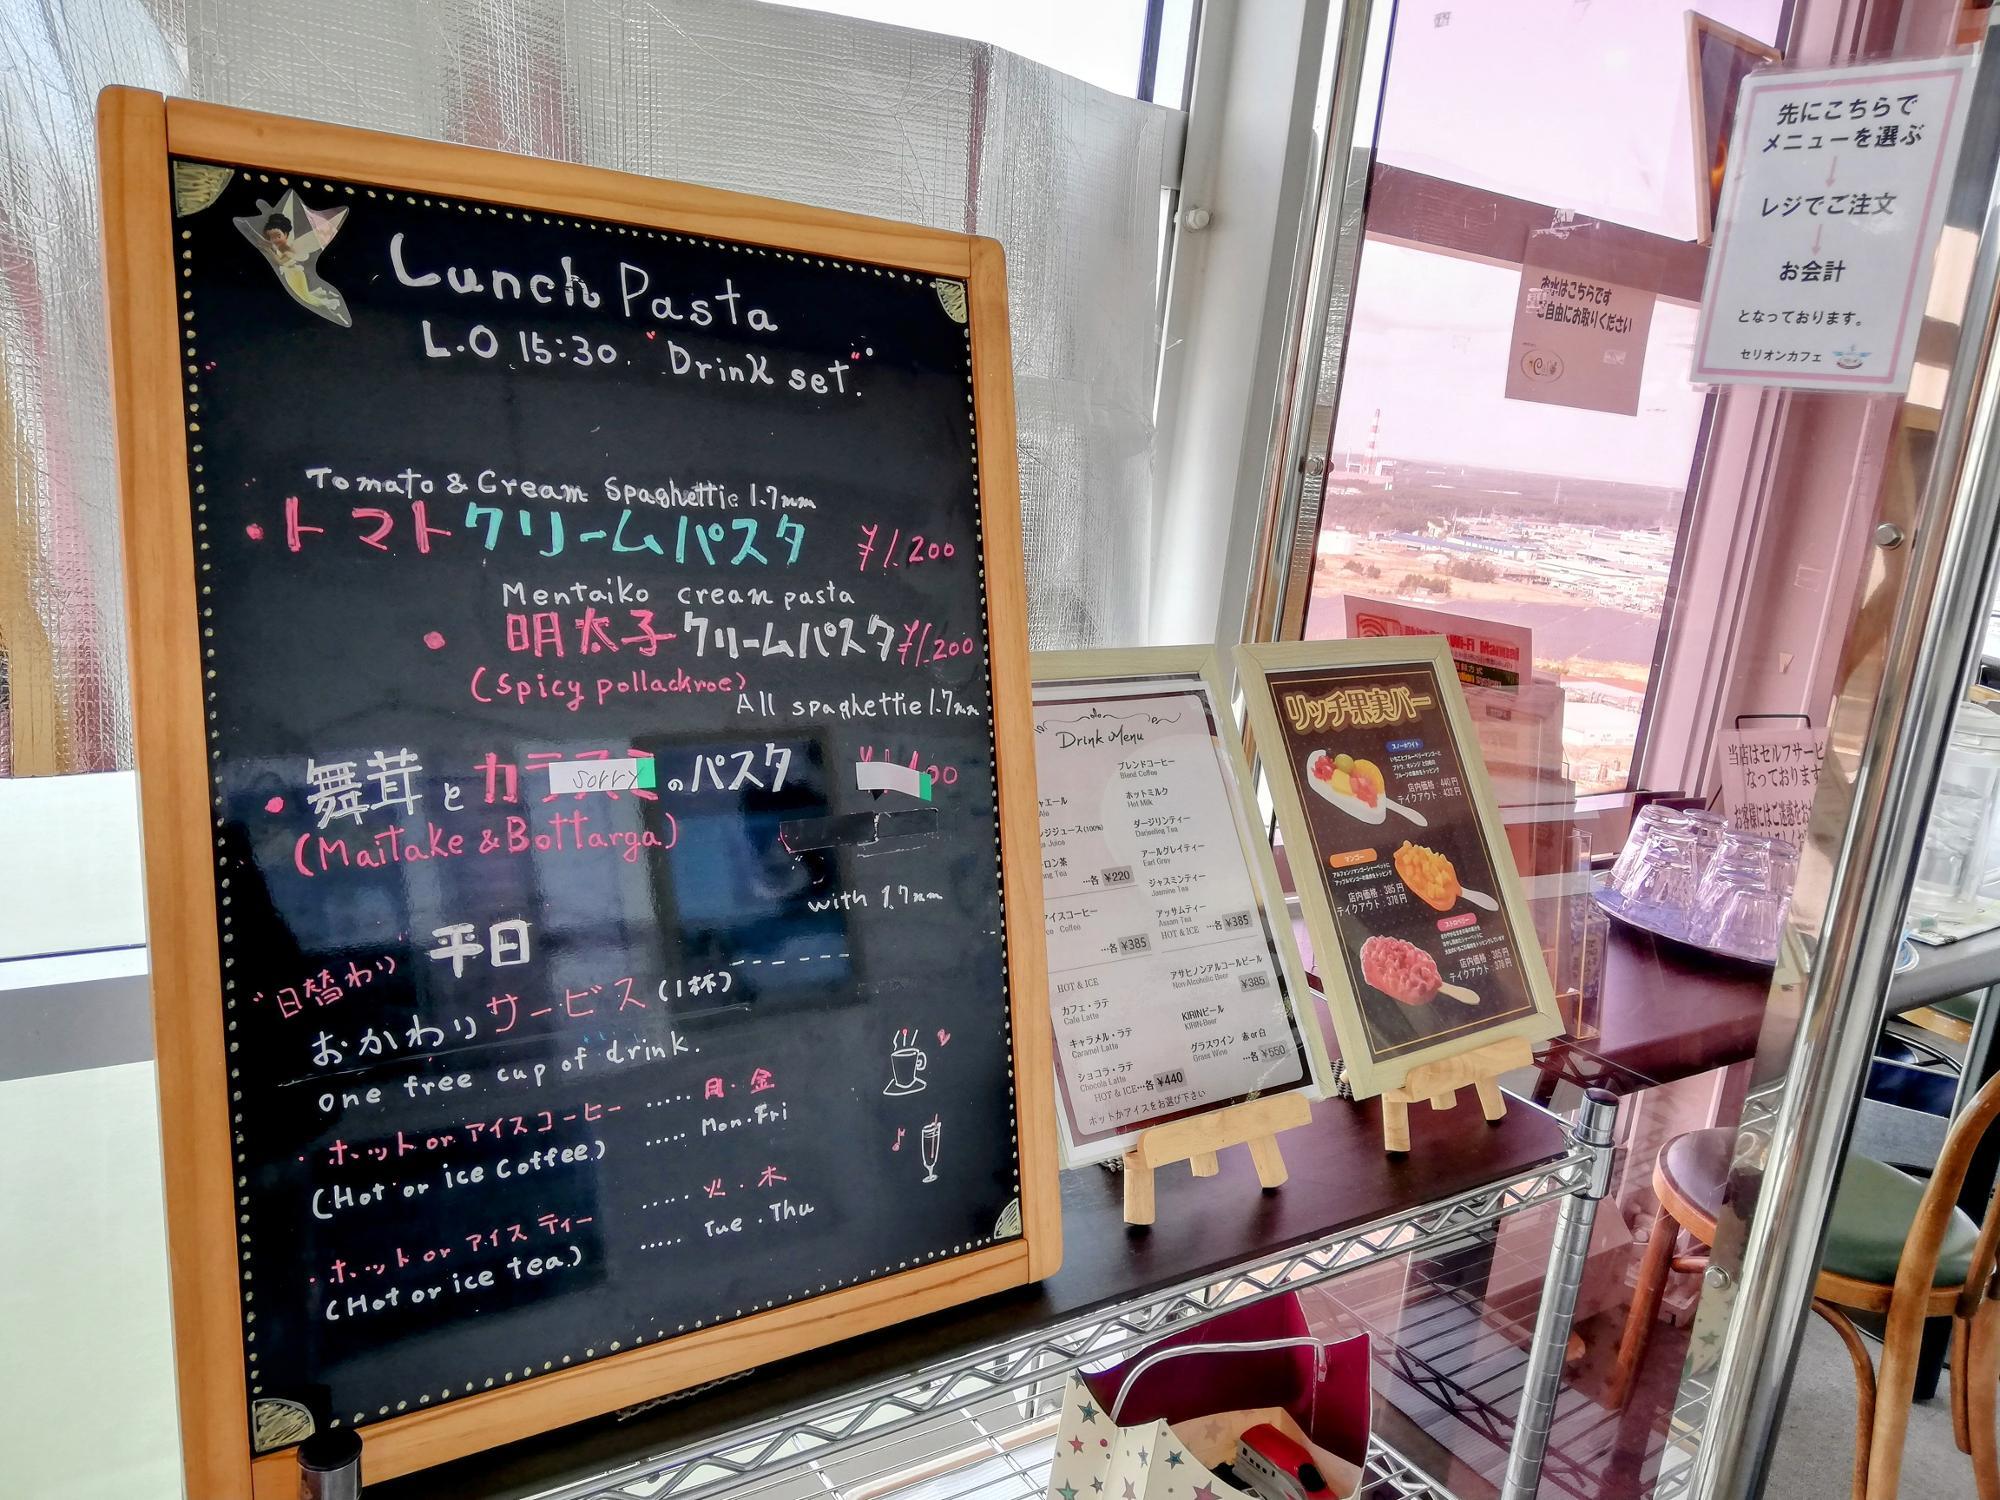 Lunch Pasta
L.O 15:30. "Drink set".
Tomato & Cream Spaghettie 1.7mm
・トマトクリームパスタ ¥1.200
Mentaiko cream pasta
・明太子クリームパスタ ¥1.200
(spicy pollackroe)
All spaghettie 1.7mm
・舞茸とカラスミのパスタ
sorry
(Maitake & Bottarga)
with 1.7mm
"日替わり 平日
おかわりサービス (1杯)
one free cup of drink.
・ホットorアイスコーヒー ..... 月・金
(Hot or ice Coffee) ..... Mon・Fri
・ホットorアイスティー ..... 火・木
(Hot or ice tea) ..... Tue・Thu
Drink Menu
ブレンドコーヒー
Blend Coffee
ホットミルク
Hot Milk
ダージリンティー
Darjeeling Tea
アールグレイティー
Earl Grey
ジャスミンティー
Jasmine Tea
アッサムティー
Assam Tea
HOT & ICE …各 ¥385
アサヒノンアルコールビール
Non-Alcoholic Beer
¥385
KIRINビール
KIRIN-Beer
グラスワイン 赤or白
Grass Wine …各 ¥550
…各 ¥220
アイスコーヒー
Coffee
…各 ¥385
HOT & ICE
カフェ・ラテ
Cafe Latte
キャラメル・ラテ
Caramel Latte
ショコラ・ラテ
Chocola Latte
HOT & ICE…各 ¥440
ホットかアイスをお選び下さい
リッチ果実バー
スノーホワイト
店内価格:440円
テイクアウト:432円
マンゴー
店内価格:385円
テイクアウト:378円
ストロベリー
店内価格:385円
テイクアウト:378円
お水はこちらです
ご自由にお取りください
先にこちらで
メニューを選ぶ
↓
レジでご注文
↓
お会計
となっております。
セリオンカフェ
当店はセルフサービ
なっております